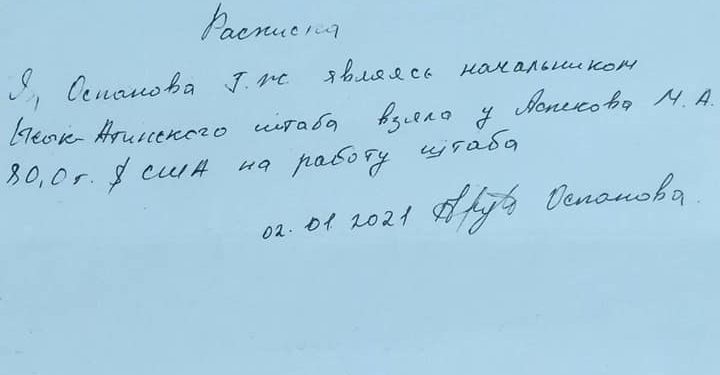 Расписка
Я, Оспанова Г.Ж являясь начальником
Ысык-Атинского штаба взяла у Аспекова М.А.
80,0 т. $ США на работу штаба
02.01.2021 Оспанова.